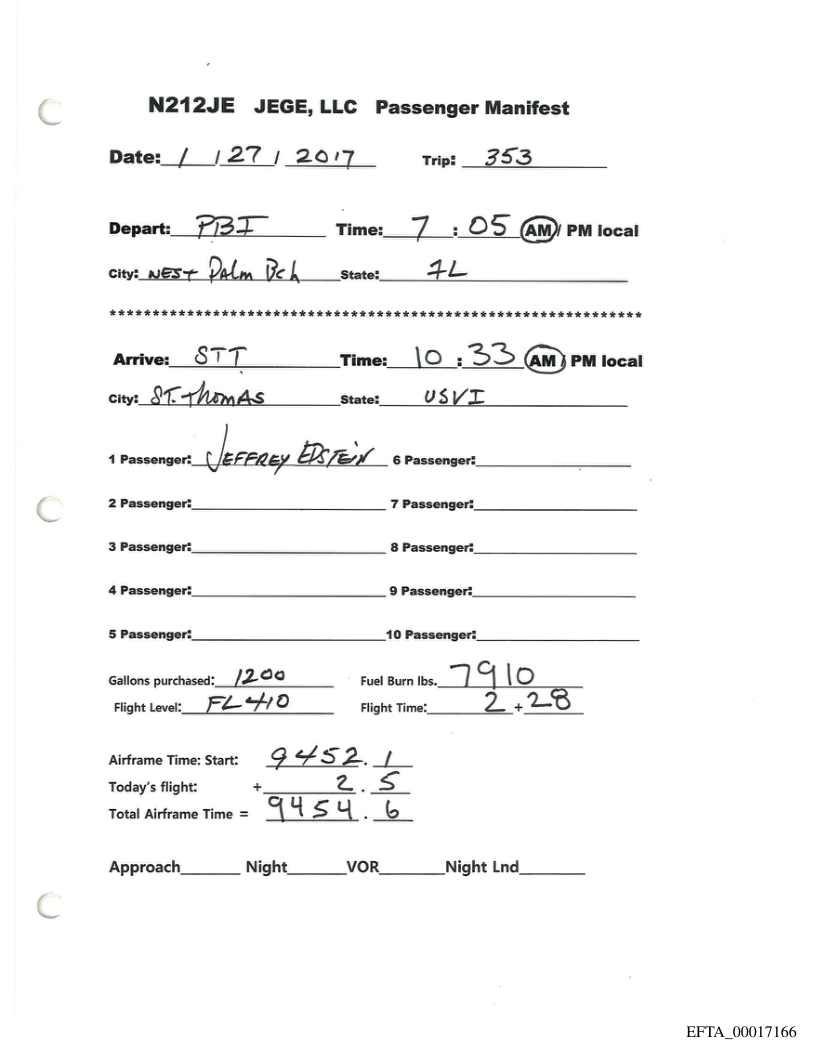 N212JE JEGE, LLC Passenger Manifest
Date: 1 / 27 / 2017 Trip: 353
Depart: PBI Time: 7 : 05 AM / PM local
City: WEST PALM BCH State: FL
**************************************************************
Arrive: STT Time: 10 : 33 AM / PM local
City: ST. THOMAS State: USVI
1 Passenger: JEFFREY EPSTEIN 6 Passenger:
2 Passenger: 7 Passenger:
3 Passenger: 8 Passenger:
4 Passenger: 9 Passenger:
5 Passenger: 10 Passenger:
Gallons purchased: 1200 Fuel Burn lbs. 7910
Flight Level: FL410 Flight Time: 2 + 28
Airframe Time: Start: 9452.1
Today's flight: + 2.5
Total Airframe Time = 9454.6
Approach Night VOR Night Lnd
EFTA_00017166